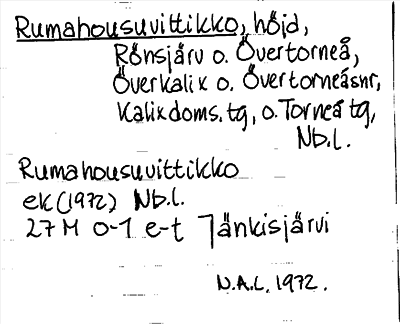 Rumahousuvittikko, höjd,
Rönsjärv o. Övertorneå,
Överkalix o. Övertorneåsnr,
Kalixdoms.tg, o. Torneå tg,
Nb.l.
Rumahousuvittikko
ek (1972) Nb.l.
27 M 0-1 e-t Jänkisjärvi
N.A.L. 1972.